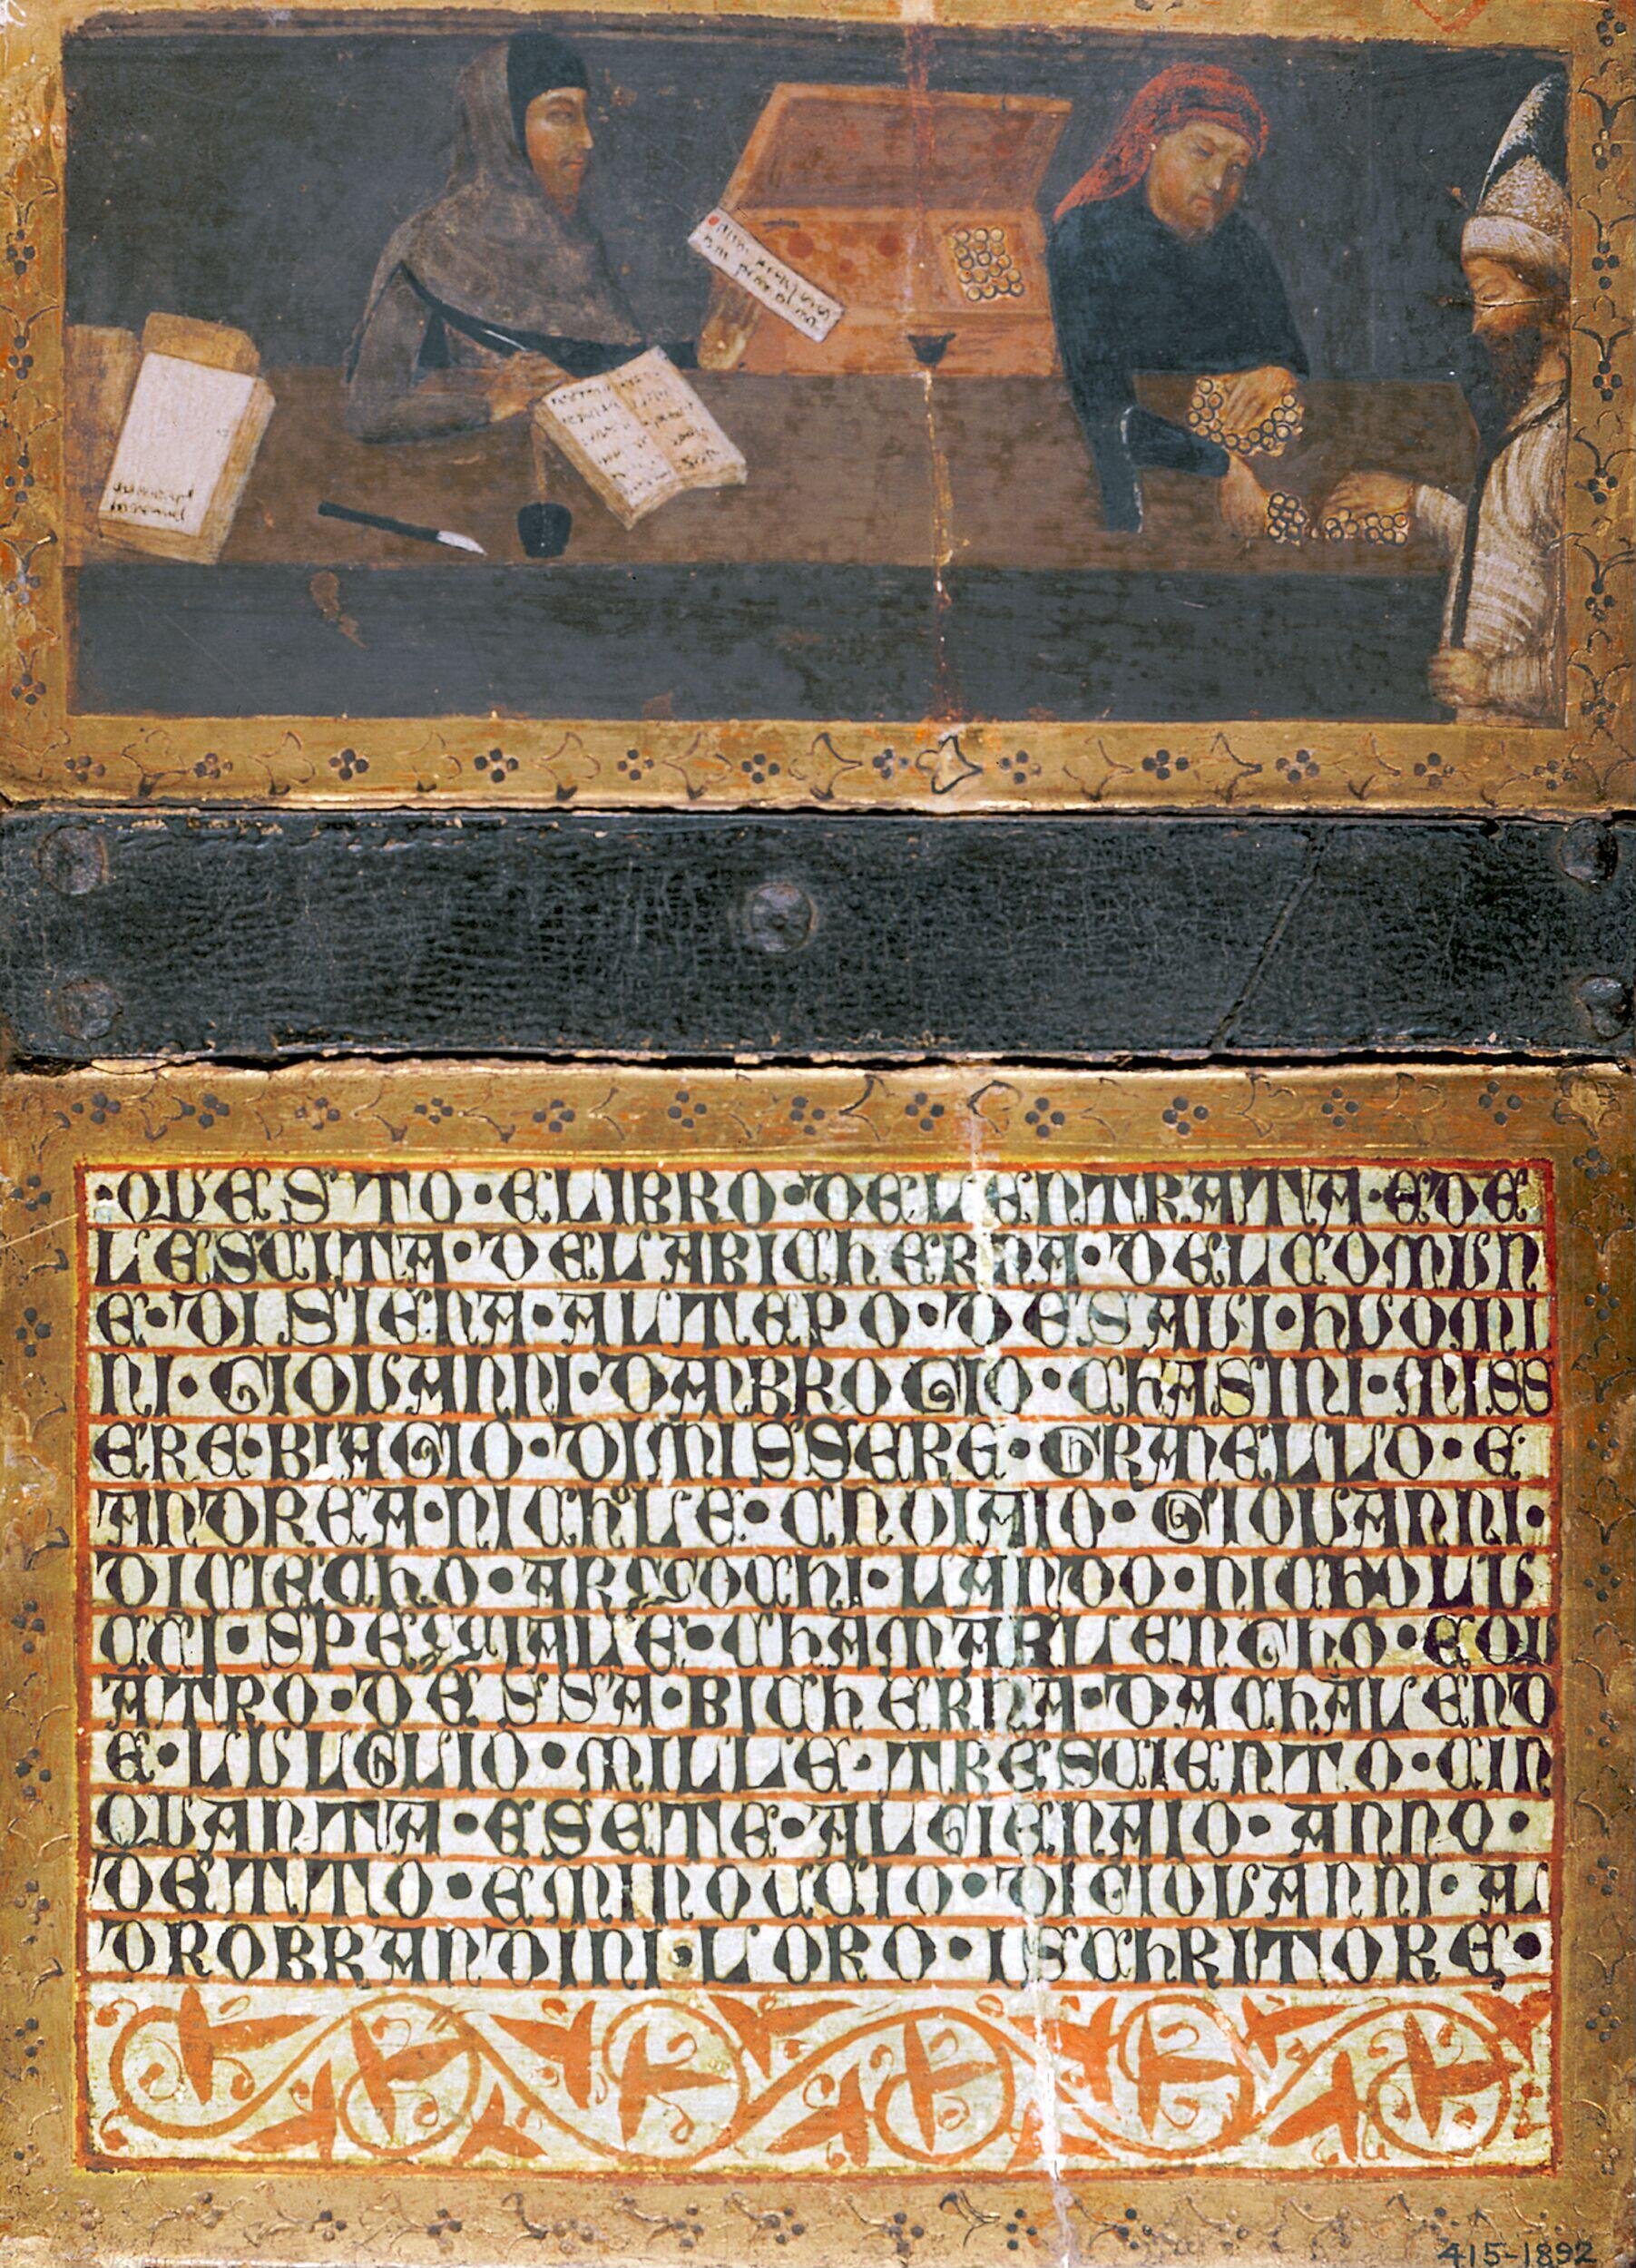 ·QVESTO·ELIBRO·DELENTRATA·EDE
LESCITA·DELABICHERNA·DELCOMVN
E·DISIENA·ALTEPO·DESAVI·HVOMI
NI·GIOVANNI·DAMBROGIO·CHASINI·MISS
ERE·BIAGIO·DIMISSERE·GRANELLO·E
ANDREA·NICHLE·CNOIAIO·GIOVANNI·
DIMECHO·ARZOCHI·LANDO·NICHOLU
CCI·SPEZIALE·CHAMARLENGHO·EQU
ATRO·DESSA·BICHERNA·DACHALEND
E·LVLGLIO·MILLE·TRESCIENTO·CIN
QVANTA·ESETE·ALGIENAIO·ANNO·
DETTO·EMINOCCIO·DIGIOVANNI·AL
DROBRANDINI·LORO·ISCHRITORE·
415-1892